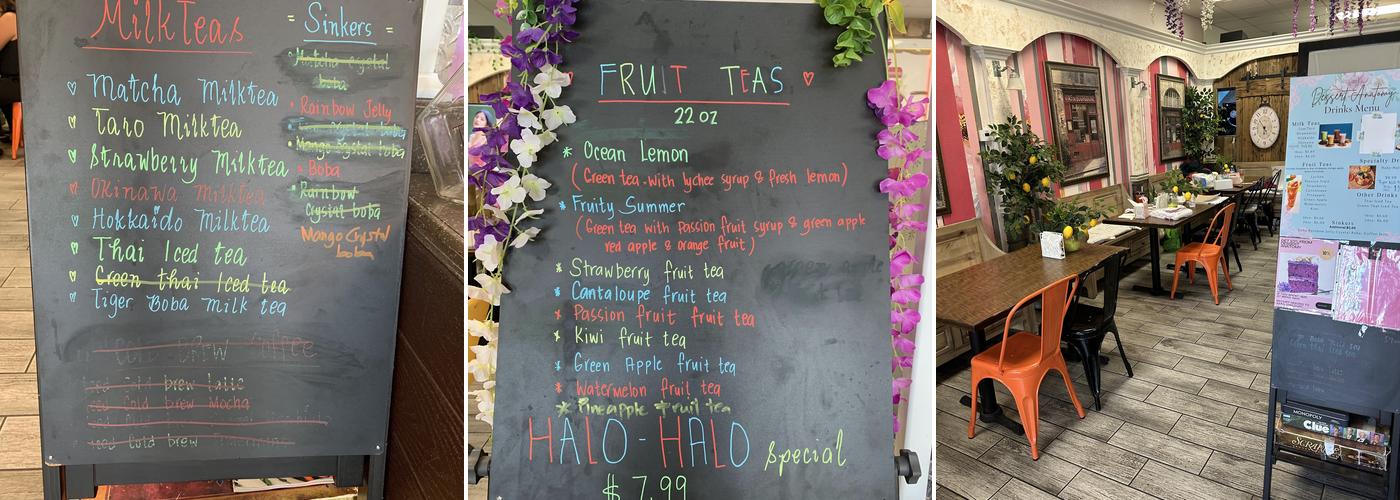 Milk Teas
Matcha Milktea
Taro Milktea
Strawberry Milktea
Okinawa Milktea
Hokkaido Milktea
Thai Iced tea
Green thai Iced tea
Tiger Boba Milk tea
Cold Brew Coffee
Iced Cold brew latte
Iced Cold brew Mocha
Iced Cold brew
= Sinkers =
Matcha Crystal
boba
Rainbow Jelly
Crystal boba
Mango Crystal boba
Boba
Rainbow
Crystal boba
Mango Crystal
boba
FRUIT TEAS
22 oz
* Ocean Lemon
(Green tea with lychee syrup & fresh lemon)
* Fruity Summer
(Green tea with Passion fruit syrup & green apple
red apple & orange fruit)
* Strawberry fruit tea
* Cantaloupe fruit tea
* Passion fruit fruit tea
* Kiwi fruit tea
* Green Apple fruit tea
* Watermelon fruit tea
* Pineapple fruit tea
HALO-HALO special
$ 7.99
Dessert Anatomy
Drinks Menu
Milk Teas
Fruit Teas
Specialty
Other Drinks
Sinkers
MONOPOLY
Clue
SCRABB